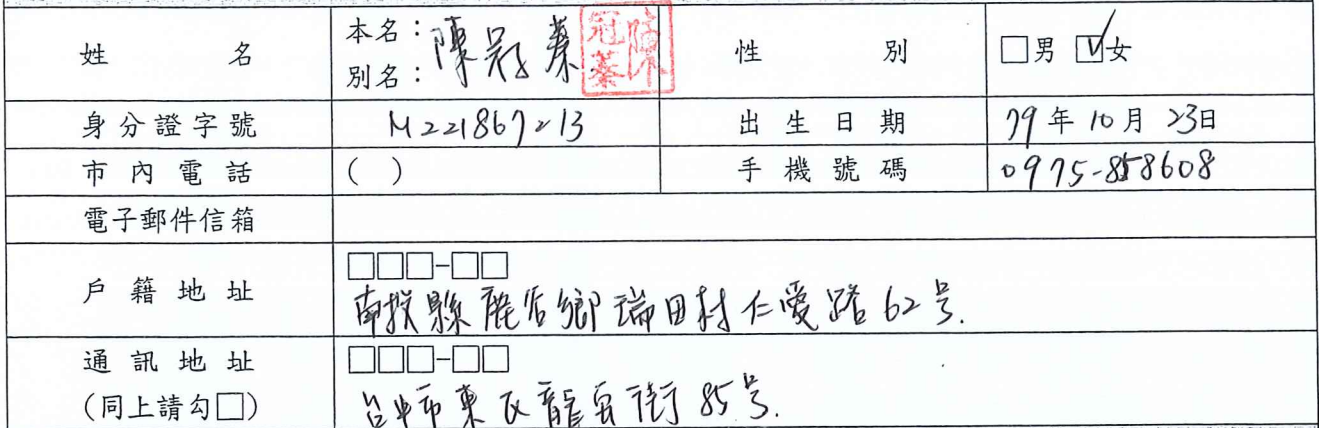 姓 名 本名：陳冠蓁 性 別 □男 ☑女
別名：
陳冠蓁
身分證字號 M221867213 出生日期 79年10月23日
市內電話 ( ) 手機號碼 0975-858608
電子郵件信箱
戶籍地址 □□□-□□
南投縣鹿谷鄉瑞田村仁愛路62号.
通訊地址 □□□-□□
(同上請勾□) 台中市東區龍 街85号.